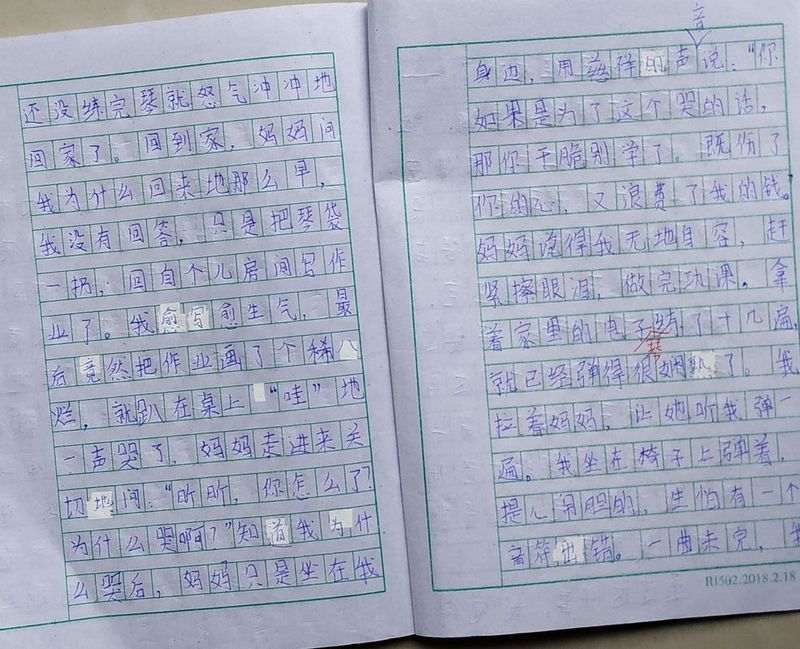 还没练完琴就怒气冲冲地
回家了。回到家，妈妈问
我为什么回来地那么早，
我没有回答，只是把琴袋
一扔，回自个儿房间写作
业了。我愈写愈生气，最
后竟然把作业画了个稀八
烂，就趴在桌上“哇”地
一声哭了，妈妈走进来关
切地问：“昕昕，你怎么了？
为什么哭啊？”知道我为什
么哭后，妈妈只是坐在我
音
身边，用慈祥的声说：“你
如果是为了这个哭的话，
那你干脆别学了。既伤了
你的心，又浪费了我的钱。”
妈妈说得我无地自容，赶
紧擦眼泪，做完功课。拿
着家里的电子练了十几遍，
琴
就已经弹得很娴熟了。我
拉着妈妈，让她听我弹一
遍。我坐在椅子上弹着，
提心吊胆的，生怕有一个
音符出错。一曲未完，我
R1502.2018.2.18